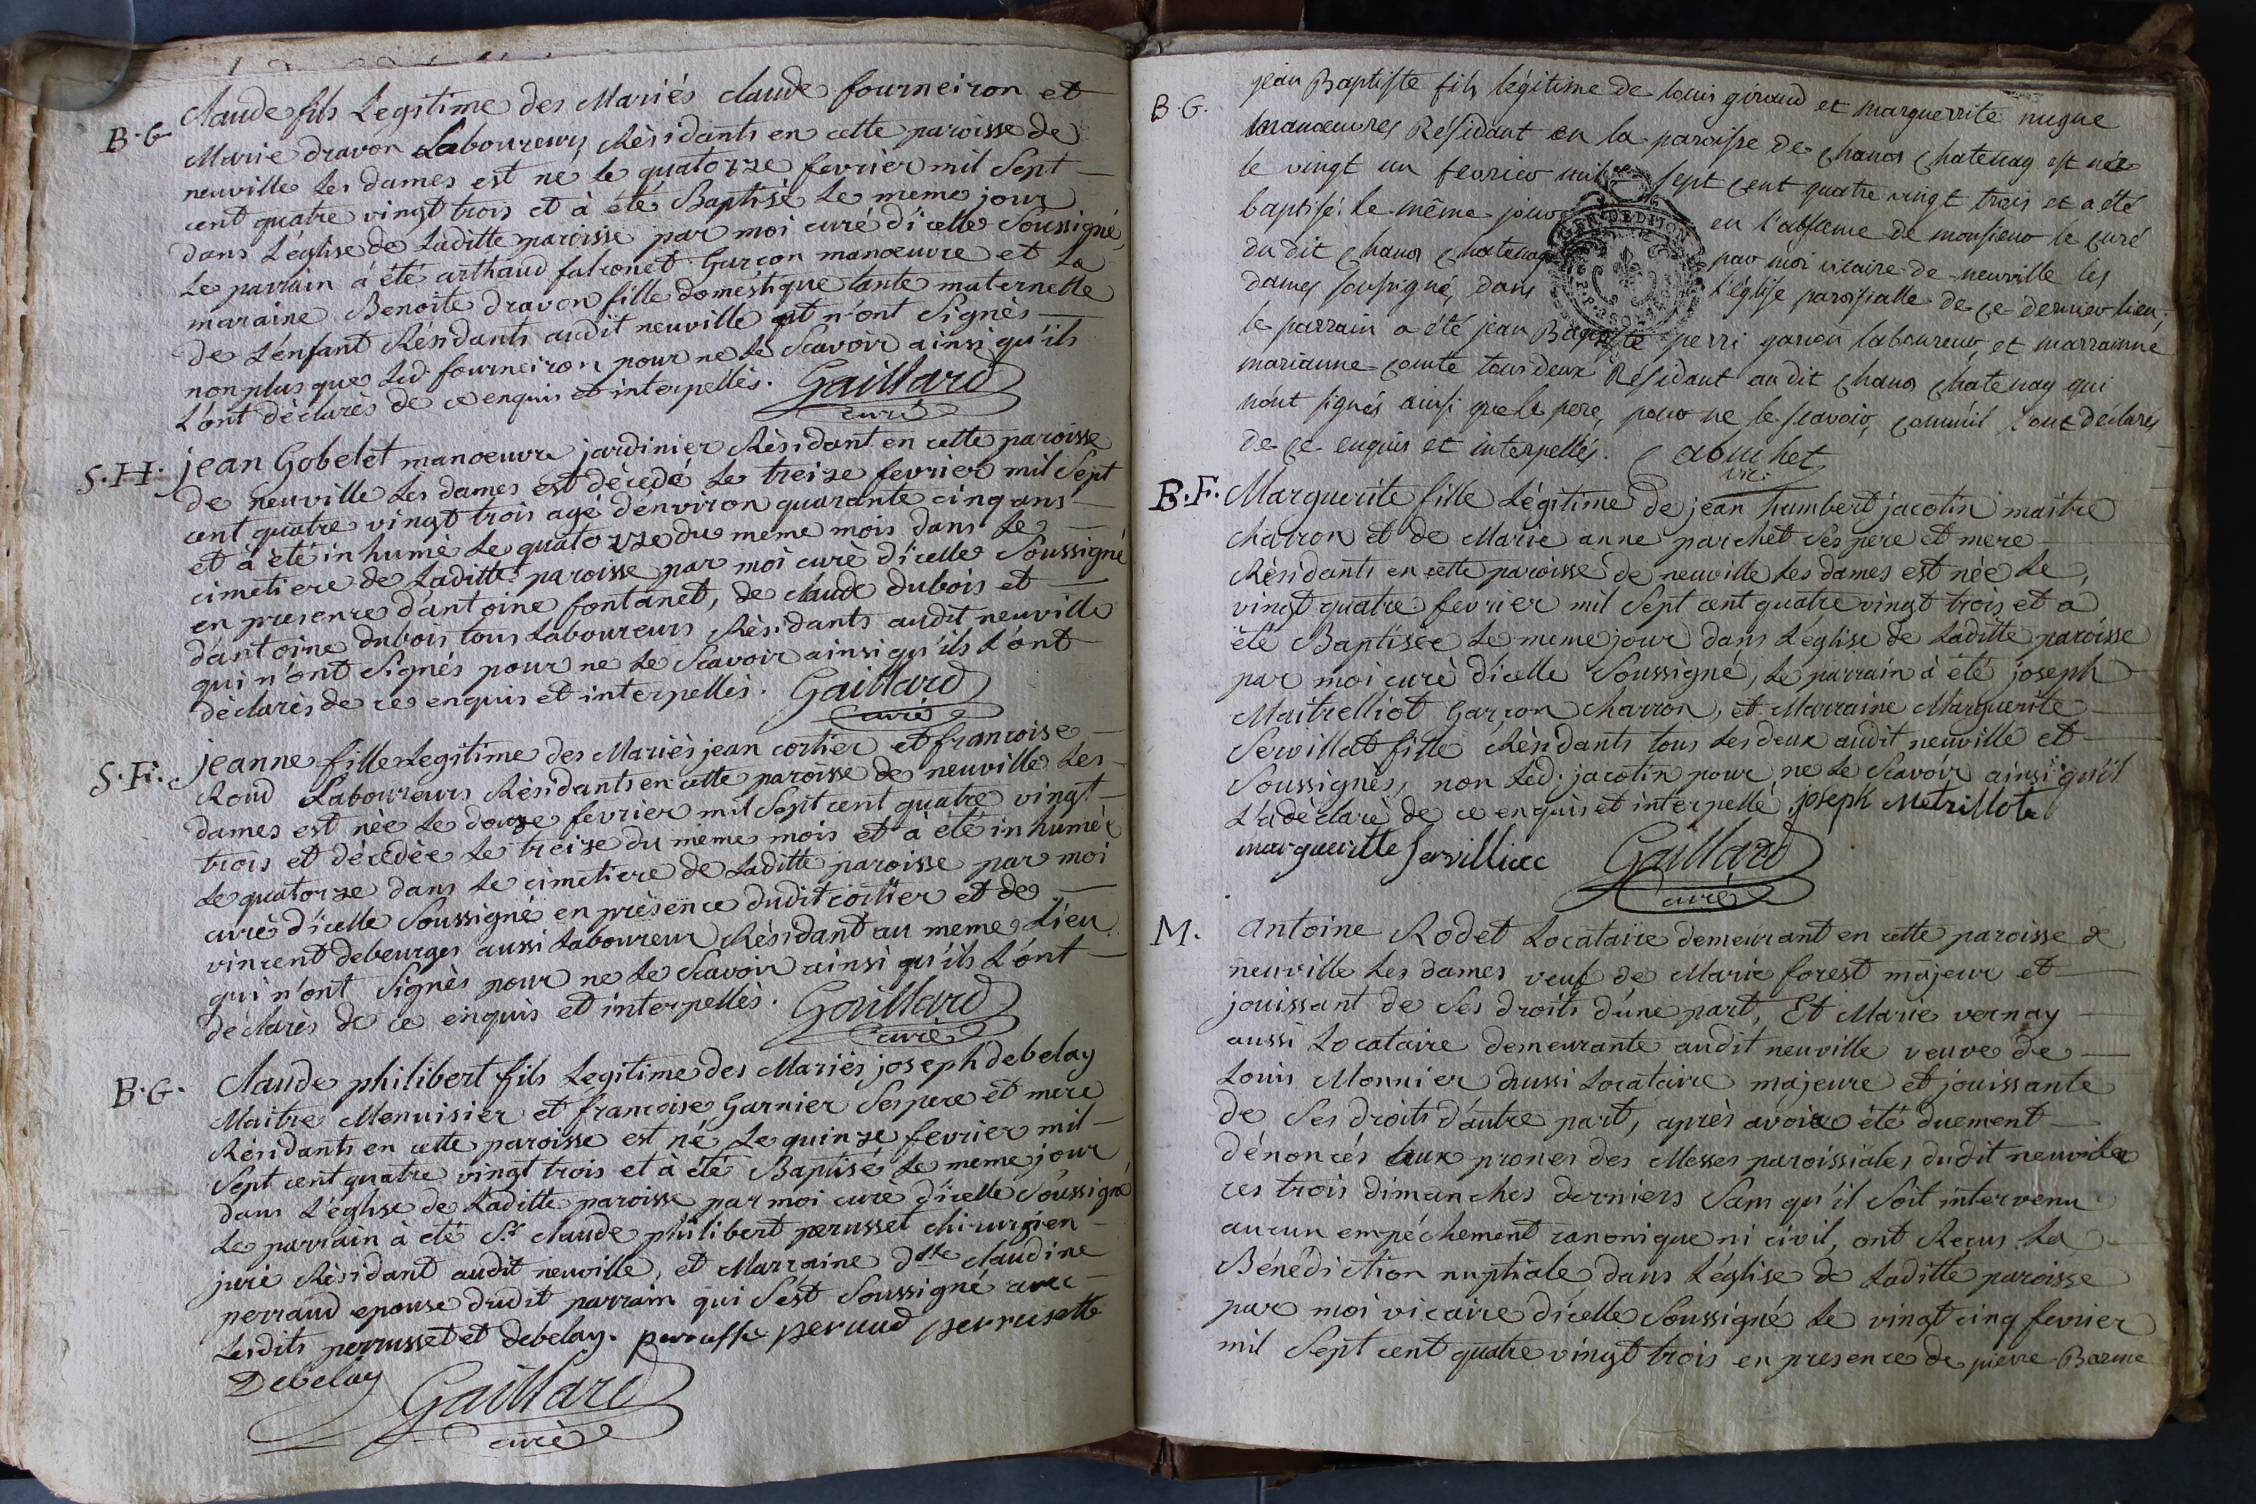 B.G
Claude fils Legitime des Mariés claude fourneiron et
Marie dravon Laboureurs Résidants en cette paroisse de
neuville Les dames est né le quatorze fevrier mil Sept
cent quatre vingt trois et à été Baptisé Le meme jour
dans L'église de Laditte paroisse par moi curé d'icelle Soussigné
Le parrain à été arthaud falconet Garçon manoeuvre et La
maraine Benoite dravon fille domestique tante maternelle
de L'enfant Résidants audit neuville qt n'ont Signès
non plus que Led. fourneiron pour ne Le Scavoir ainsi qu'ils
L'ont déclarès de ce enquis et interpellès. Gaillard
curé
S.H.
jean Gobelet manoeuvre jardinier Résidant en cette paroisse
de neuville Les dames est dècedé Le treize fevrier mil Sept
cent quatre vingt trois agé d'environ quarante cinq ans
et à été inhumè Le quatorze du meme mois dans Le
cimetiere de Laditte paroisse par moi curè d'icelle Soussigné
en presence d'antoine fontanet, de claude dubois et
d'antoine dubois tous Laboureurs Rèsidants audit neuville
qui n'ont Signés pour ne Le Scavoir ainsi qu'ils L'ont
dèclarès de ce enquis et interpellès. Gaillard
curé
S.Fi.
jeanne fille Legitime des Mariès jean cortier et francoise
Roud Laboureurs Résidants en cette paroisse de neuville Les
dames est née Le douze fevrier mil Sept cent quatre vingt
trois et dècedèe Le treize du meme mois et à été inhumée
Le quatorze dans Le cimetiere de Laditte paroisse par moi
curè d'icelle Soussigné en présence dudit cortier et de
vincent debeurges aussi Laboureur Rèsidant au meme Lieu
qui n'ont Signès pour ne Le Scavoir ainsi qu'ils L'ont
déclarès de ce enquis et interpellès. Gaillard
curé
B.G.
Claude philibert fils Legitime des Mariés joseph debelay
Maitre Menuisier et francoise Garnier Ses pere et mere
Résidants en cette paroisse est né Le quinze fevrier mil
Sept cent quatre vingt trois et à été Baptisé Le meme jour
dans L'église de Laditte paroisse par moi curé d'icelle Soussigné
Le parrain à été Sr claude philibert perusset chirurgien
juré Résidant audit neuville, et Marraine dlle claudine
perraud epouse dudit parrain qui S'est Soussigné avec
Lesdits perrusset et debelay. perrud perrusette
Debelay
Gaillard
curé
B.G.
jean Baptiste fils légitime de louis giraud et marguerite nugue
manoeuvres Résidant en la paroisse de chanos chatenay est née
le vingt un fevrier mil sept cent quatre vingt trois et a été
baptisé le même jour en l'absence de monsieur le curé
du dit chanos chatenay par moi vicaire de neuville les
dames soussigné, dans l'église paroissialle de ce dernier lieu,
le parrain a été jean Baptiste perri garçon laboureur, et marrainne
marianne comte tous deux Résidant au dit chanos chatenay qui
n'ont signés ainsi que le pere, pour ne le scavoir, comm'il l'ont déclarés
de ce enquis et interpellés. Cabuchet
vic.
GEN. DEDITION
B.F.
Marguerite fille Légitime de jean humbert jacotin maitre
charron et de Marie anne parchet Ses pere et mere
Rèsidants en cette paroisse de neuville Les dames est née Le
vingt quatre fevrier mil Sept cent quatre vingt trois et a
été Baptisée Le meme jour dans L'église de Laditte paroisse
par moi curé d'icelle Soussigné, Le parrain à été joseph
Maitrelliot Garçon charron, et Marraine Marguerite
Servillat fille Rèsidants tous Les deux audit neuville et
Soussignés, non Led. jacotin pour ne Le Scavoir ainsi qu'il
L'a dèclarè de ce enquis et interpellé joseph Metrillot
margueritte Servilliat Gaillard
curé
M.
Antoine Rodet Locataire demeurant en cette paroisse de
neuville Les dames veuf de Marie forest majeur et
jouissant de Ses droits d'une part, Et Marie vernay
aussi Locataire demeurante audit neuville veuve de
Louis Monnier aussi Locataire majeure et jouissante
de Ses droits d'autre part, après avoir été duement
dénoncés aux prones des Messes paroissiales dudit neuville
ces trois dimanches derniers Sans qu'il Soit intervenu
aucun empéchement canonique ni civil, ont Reçus La
Bénédiction nuptiale dans L'église de Laditte paroisse
par moi vicaire d'icelle Soussigné Le vingt cinq fevrier
mil Sept cent quatre vingt trois en presence de pierre Barme